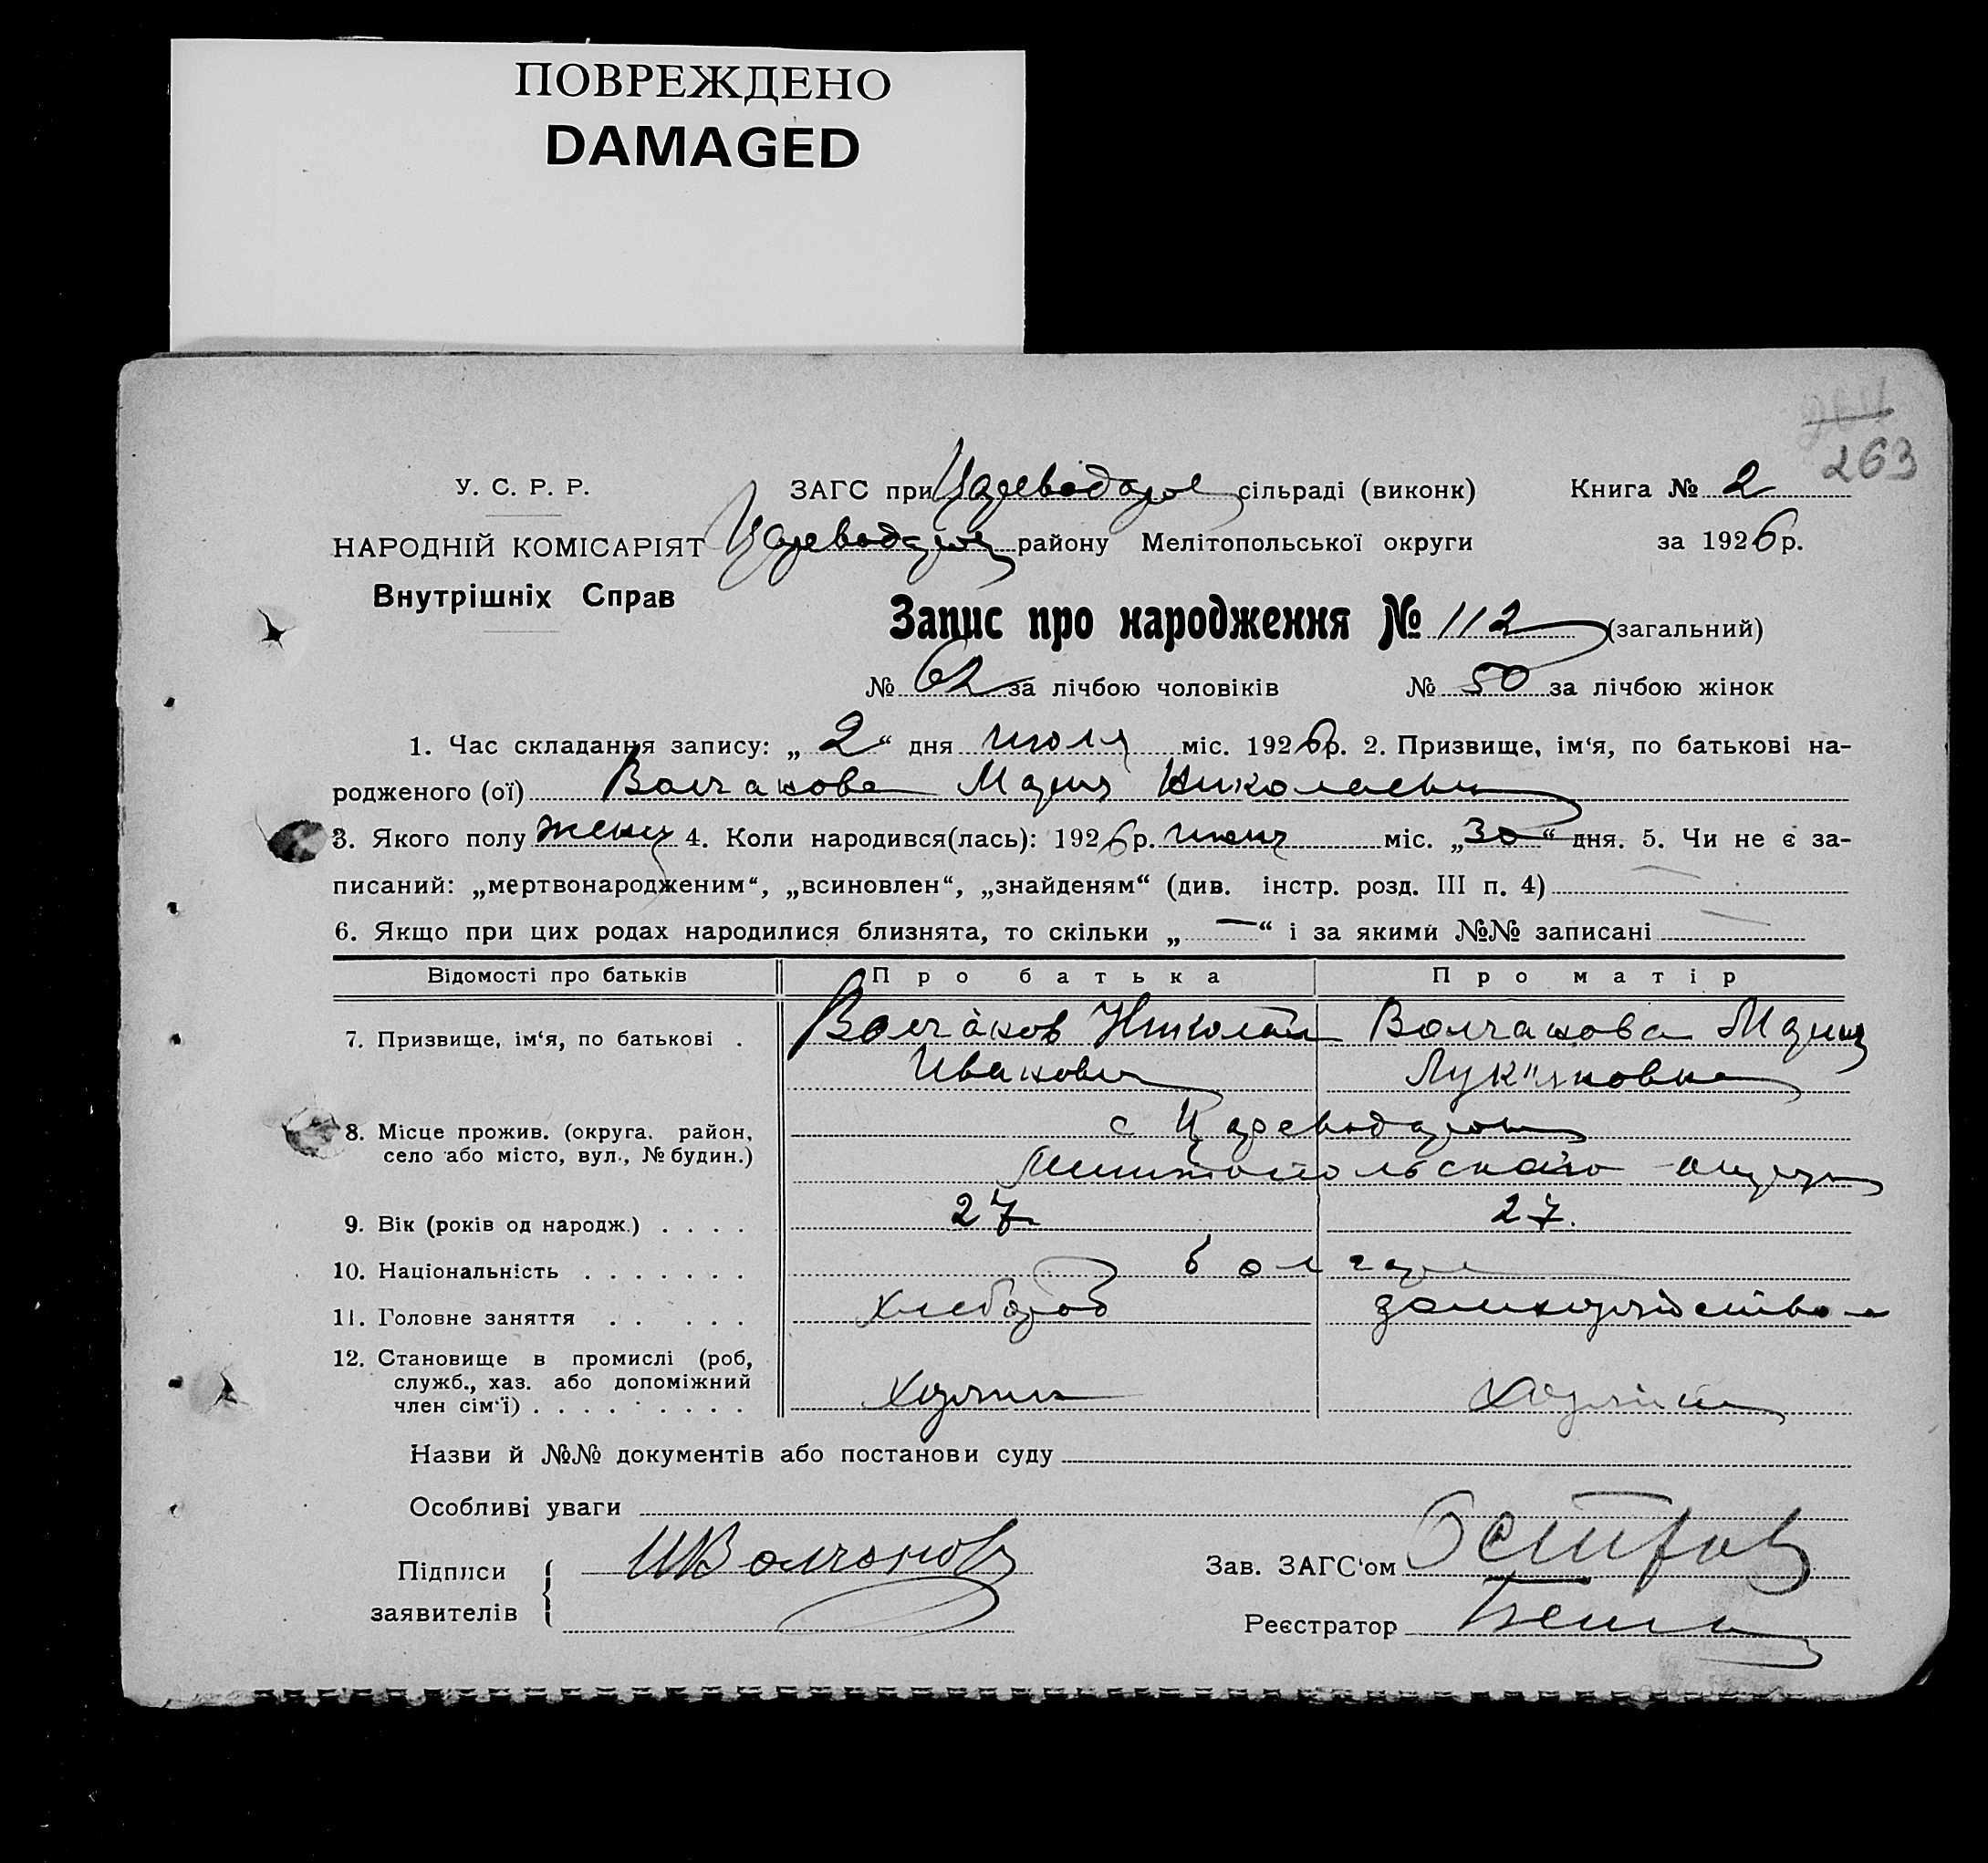 ПОВРЕЖДЕНО
DAMAGED
264
263
У. С. Р. Р.
ЗАГС при Цареводаров сільраді (виконк)
Книга № 2
НАРОДНІЙ КОМІСАРІЯТ
району Мелітопольської округи
за 1926 р.
Внутрішніх Справ
Запис про народження № 112 (загальний)
№ 62 за лічбою чоловіків № 50 за лічбою жінок
1. Час складання запису: „2“ дня июля міс. 1926 р. 2. Призвище, ім‘я, по батькові на-
родженого (ої) Волчакова Мария Николаевн
3. Якого полу женц 4. Коли народився(лась): 1926 р. июня міс. „30“ дня. 5. Чи не є за-
писаний: „мертвонародженим“, „всиновлен“, „знайденям“ (див. інстр. розд. III п. 4) —
6. Якщо при цих родах народилися близнята, то скільки „—“ і за якими №№ записані —
Відомості про батьків
Про батька
Про матір
7. Призвище, ім‘я, по батькові .
Волчаков Николай
Волчакова Мария
Иванович
Лук"яновна
8. Місце прожив. (округа, район,
село або місто, вул., № будин.)
с Царевода
Мелитопольского округа
9. Вік (років од народж.) . . . .
27
27.
10. Національність . . . . . . .
болгаре
11. Головне заняття . . . . .
хлебороб
домохозяйство
12. Становище в промислі (роб,
служб., хаз. або допоміжний
член сім‘ї) . . . . . . . . .
хозяин
хозяйка
Назви й №№ документів або постанови суду
Особливі уваги
Підписи
заявителів
НВолчаков
Зав. ЗАГС‘ом
Реєстратор